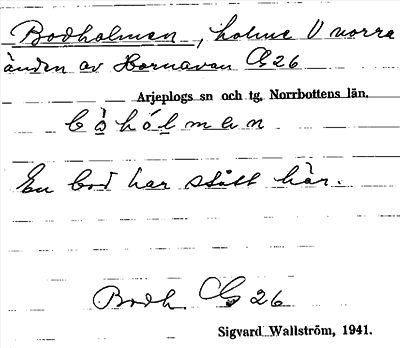 Bodholmen, holme V norra
änden av Hornavan Cg 26
Arjeplogs sn och tg, Norrbottens län.
En bod har stått här.
Bodh Cg 26
Sigvard Wallström, 1941.